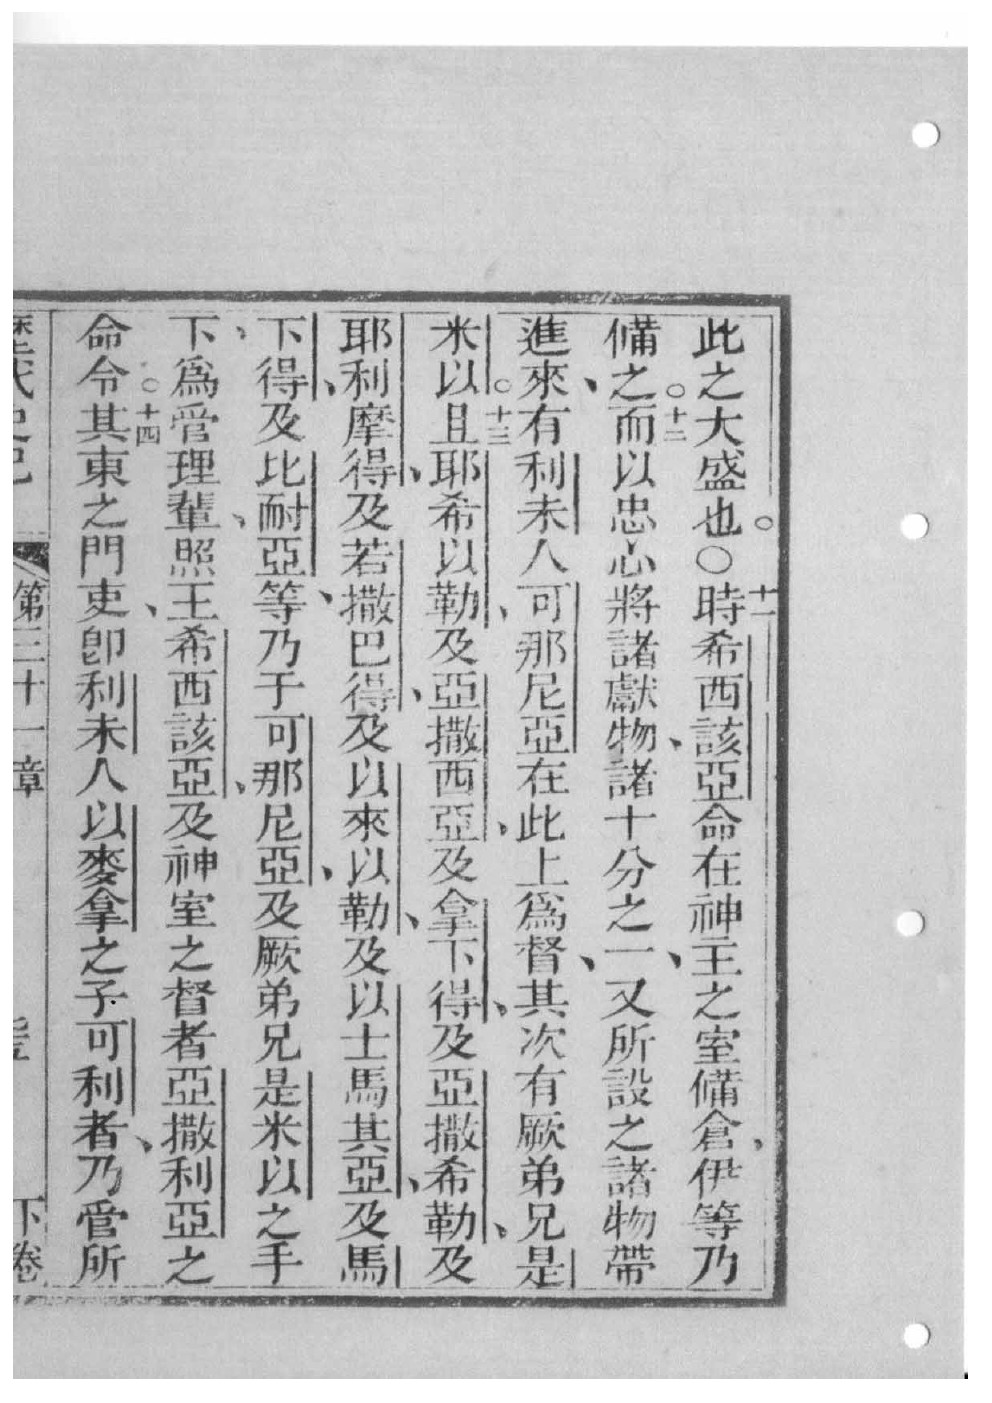 此之大盛也。〇十一時希西該亞命在神主之室備倉、伊等乃
備之。十二而以忠心將諸獻物、諸十分之一、又所設之諸物帶
進來、有利未人可那尼亞在此上爲督、其次有厥弟兄是
米以。十三且耶希以勒、及亞撒西亞、及拿下得、及亞撒希勒、及
耶利摩得、及若撒巴得、及以來以勒、及以士馬其亞、及馬
下得、及比耐亞等、乃于可那尼亞、及厥弟兄是米以之手
下、爲管理輩、照王希西該亞、及神室之督者亞撒利亞之
命令。十四其東之門吏、卽利未人以麥拿之子可利者、乃管所
歷代史記 第三十一章 下卷